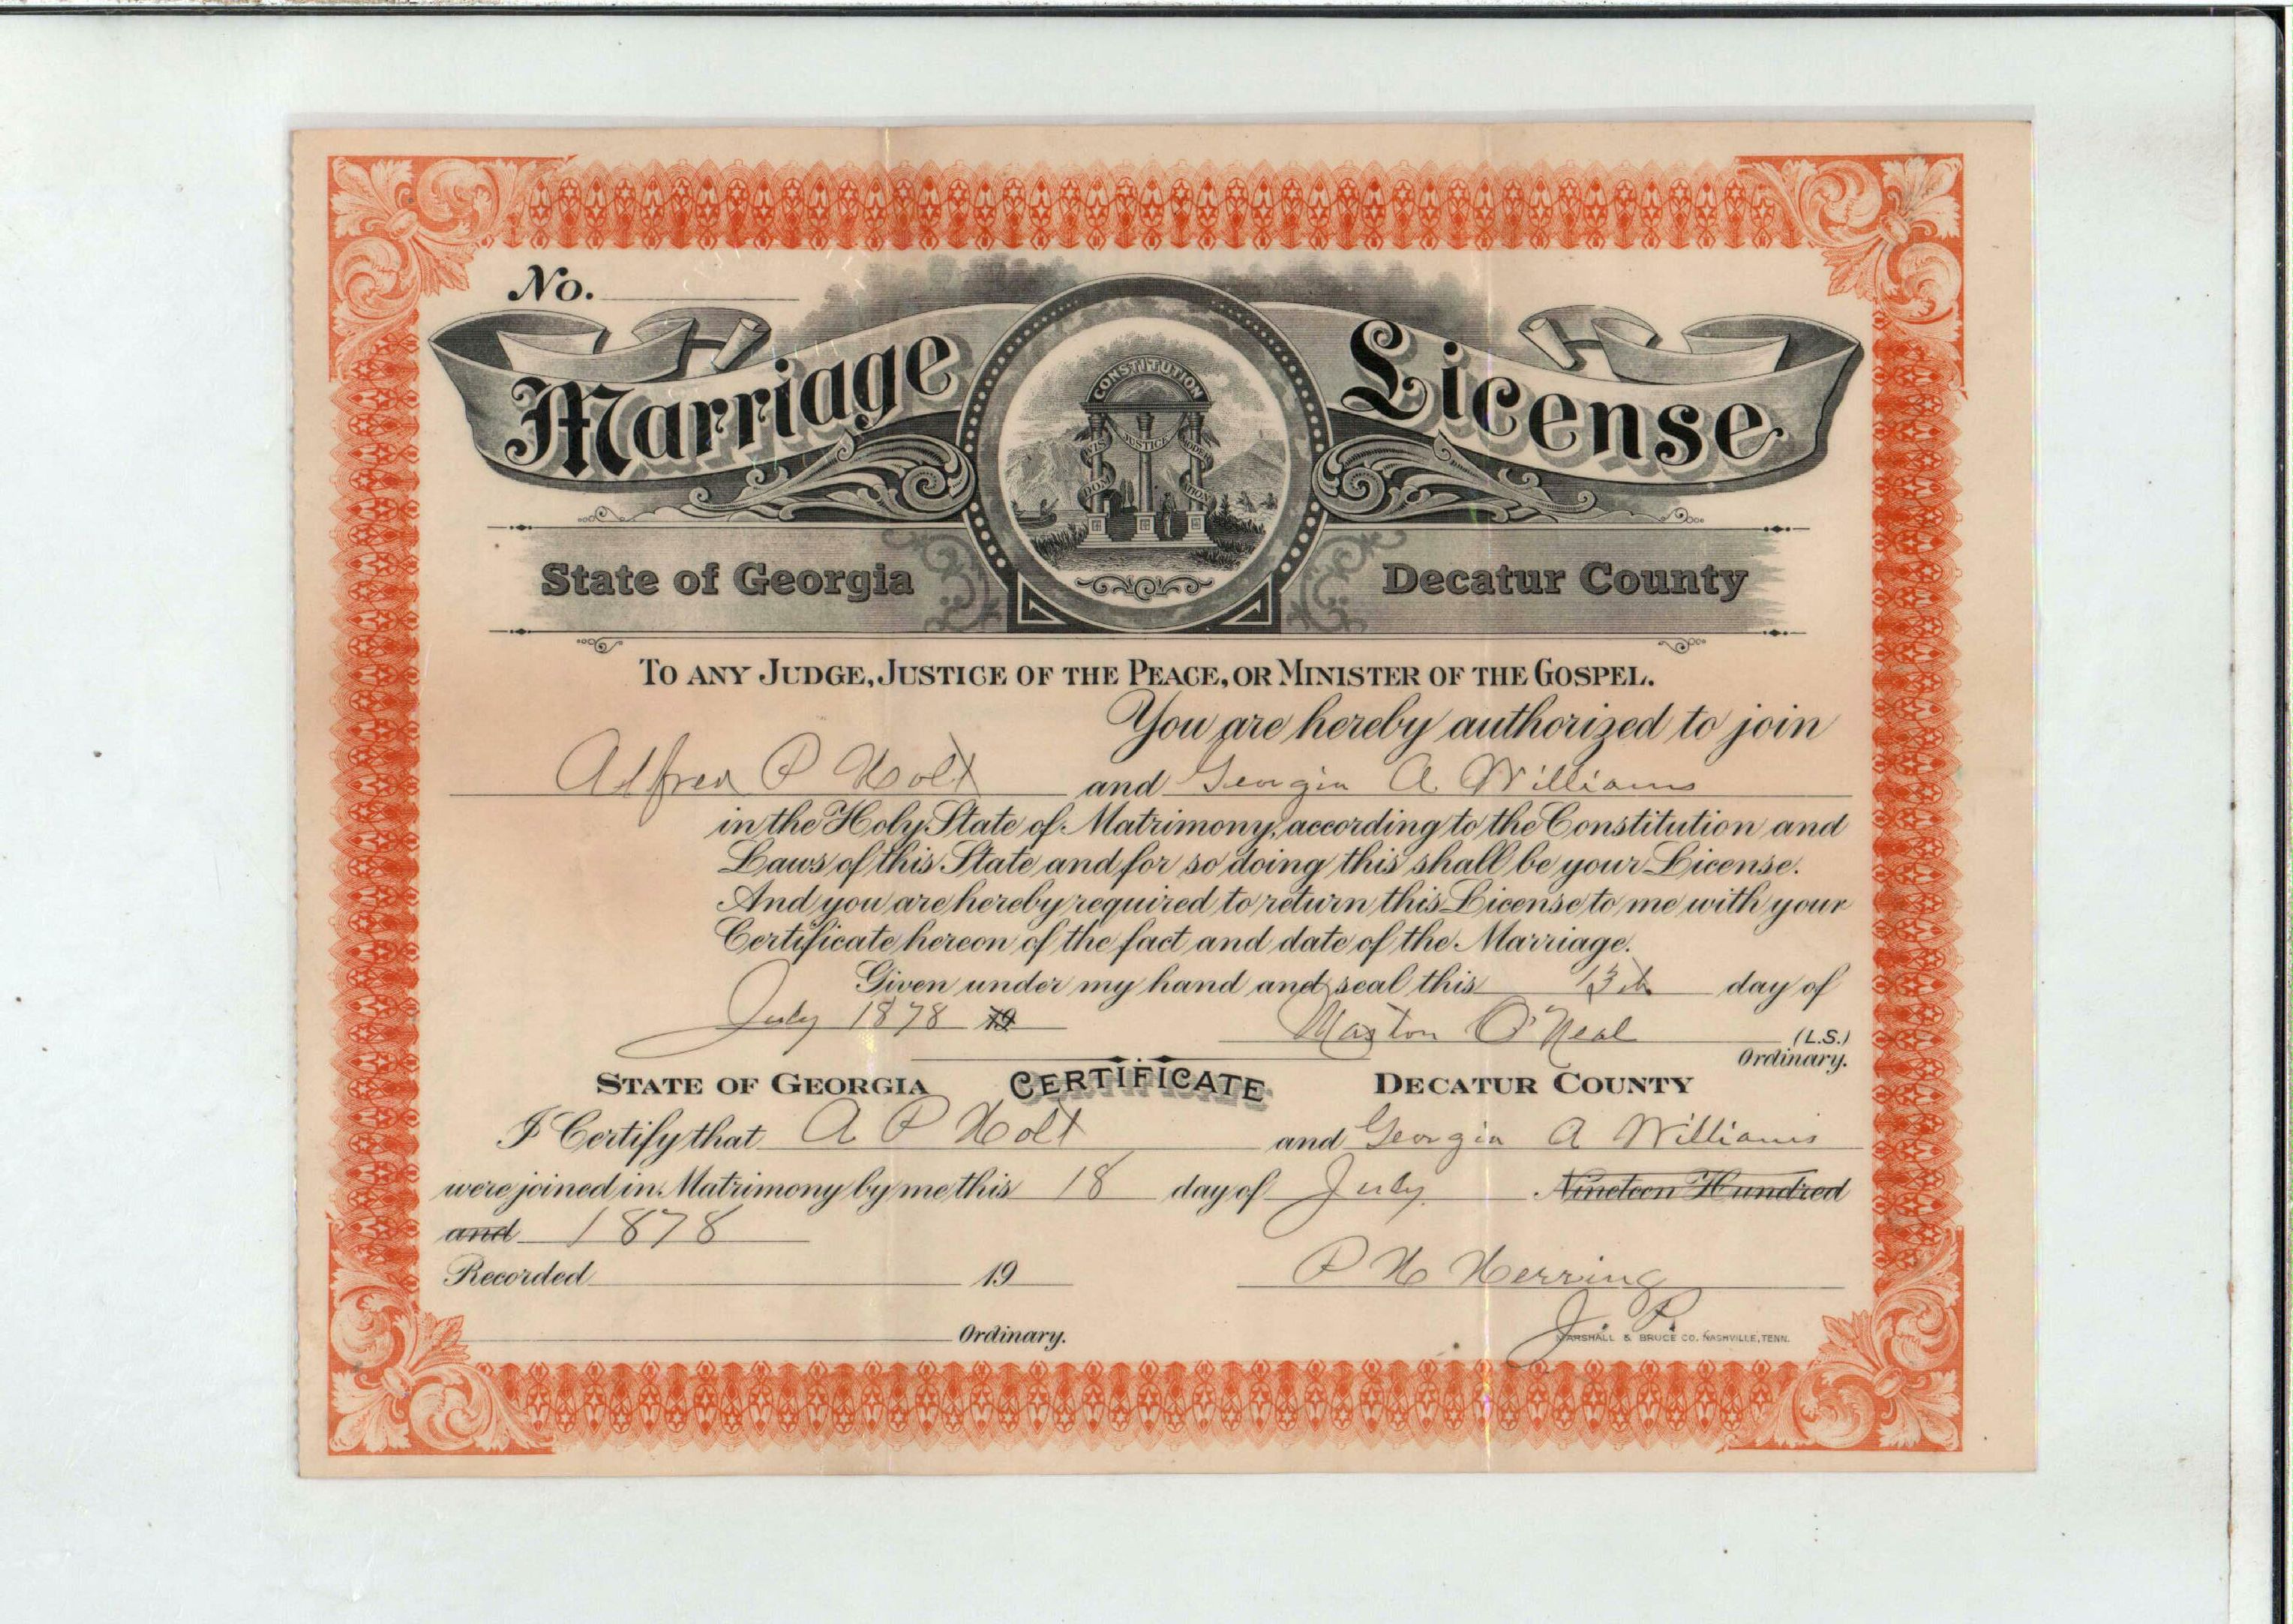 No.
Marriage License
CONSTITUTION
WISDOM JUSTICE MODERATION
State of Georgia Decatur County
TO ANY JUDGE, JUSTICE OF THE PEACE, OR MINISTER OF THE GOSPEL.
You are hereby authorized to join
Alfred P Holt and Georgia A Williams
in the Holy State of Matrimony, according to the Constitution and
Laws of this State and for so doing this shall be your License.
And you are hereby required to return this License to me with your
Certificate hereon of the fact and date of the Marriage.
Given under my hand and seal this 13th day of
July 1878 19 Maston O'Neal (L.S.)
Ordinary.
STATE OF GEORGIA CERTIFICATE DECATUR COUNTY
I Certify that A P Holt and Georgia A Williams
were joined in Matrimony by me this 18 day of July Nineteen Hundred
and 1878
Recorded 19 P H Herring
J. P.
Ordinary. MARSHALL & BRUCE CO. NASHVILLE, TENN.